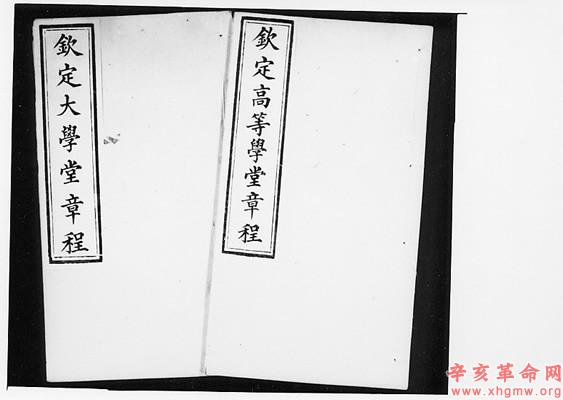 欽定大學堂章程
欽定高等學堂章程
辛亥革命网
www.xhgmw.org